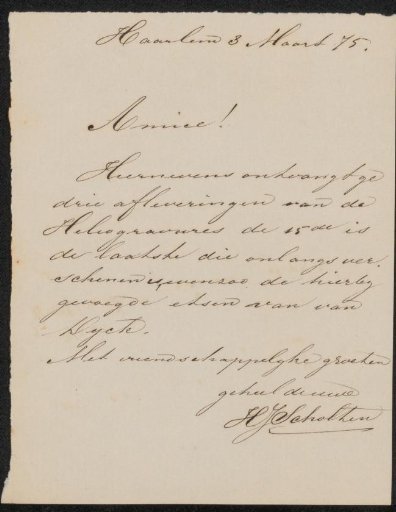 Haarlem 3 Maart 75.
Amice!
Hiernevens ontvangt ge
drie afleveringen van de
Heliogravures de 15de is
de laatste die onlangs ver.
schenen is, evenzoo de hierbij
gevoegde etsen van van
Dyck.
Met vriendschappelijke groeten
geheel de uwe
HJScholten